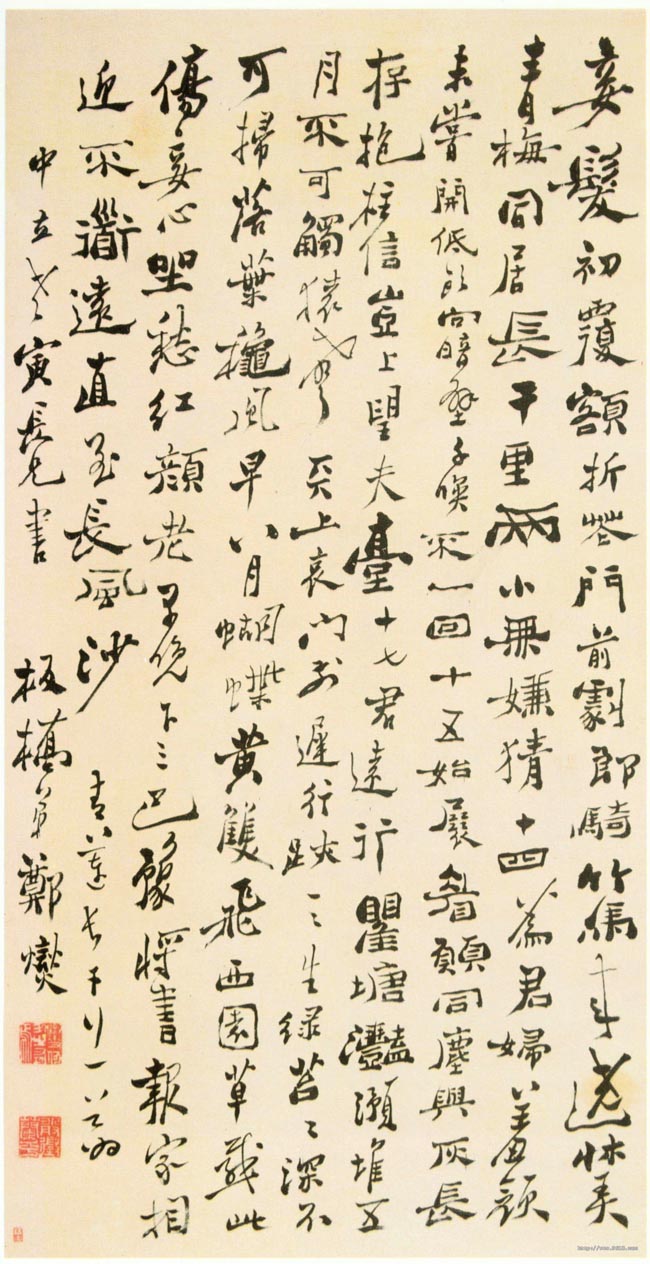 妾髮初覆額折花門前劇郎騎竹馬來遶牀弄
青梅同居長干里兩小無嫌猜十四為君婦羞顏
未嘗開低頭向暗壁千喚不一回十五始展眉願同塵與灰長
存抱柱信豈上望夫臺十七君遠行瞿塘灩澦堆五
月不可觸猿聲天上哀門前遲行跡一一生綠苔〻深不
可掃落葉秋風早八月蝴蝶黃雙飛西園草感此
傷妾心坐愁紅顏老早晚下三巴豫將書報家相
迎不道遠直至長風沙 青蓮長干行一首為
中立老寅長兄書 板橋弟鄭燮